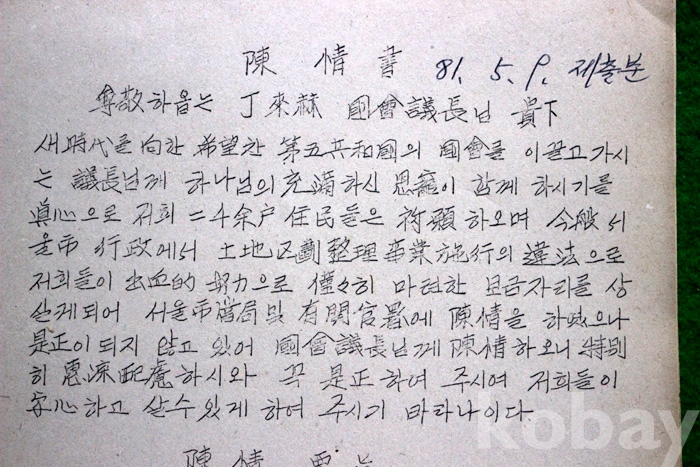 陳情書 81. 5. 9. 제출분
尊敬하옵는 丁來赫 國會議長님 貴下
새時代를 向한 希望찬 第五共和國의 國會를 이끌고 가시
는 議長님께 하나님의 充滿하신 恩寵이 함께 하시기를
眞心으로 저희 二十余户 住民들은 祈願하오며 今般 서
울市 行政에서 土地区劃整理事業施行의 違法으로
저희들이 出血的 努力으로 僅々히 마련한 보금자리를 상
실케되어 서울市當局및 有関官署에 陳情을 하였으나
是正이 되지 않고 있어 國會議長님께 陳情하오니 特別
히 惠深配慮하시와 꼭 是正하여 주시여 저희들이
安心하고 살수있게 하여 주시기 바라나이다.
陳情 要旨
kobay